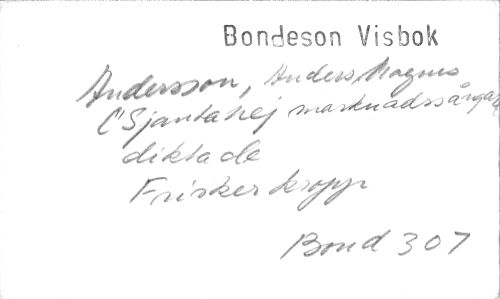 Bondeson Visbok
Andersson, Anders Magnus
("Sjantahej marknadssångare
diktade
Frisker kropp
Bond 307